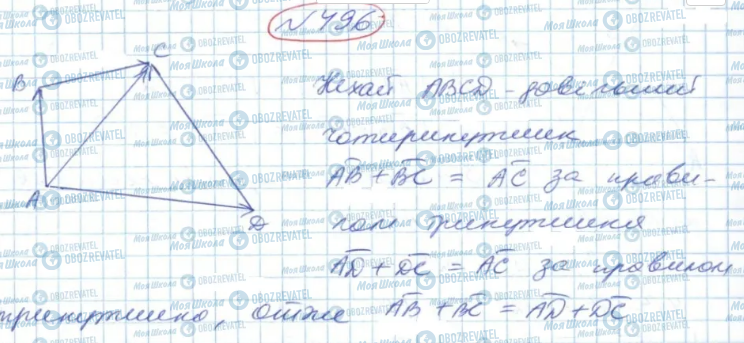 №496
B
C
A
D
Нехай ABCD - довільний
чотирикутник
AB + BC = AC за прави-
лом трикутника
AD + DC = AC за правилом
трикутника, отже AB + BC = AD + DC
Моя Школа
OBOZREVATEL